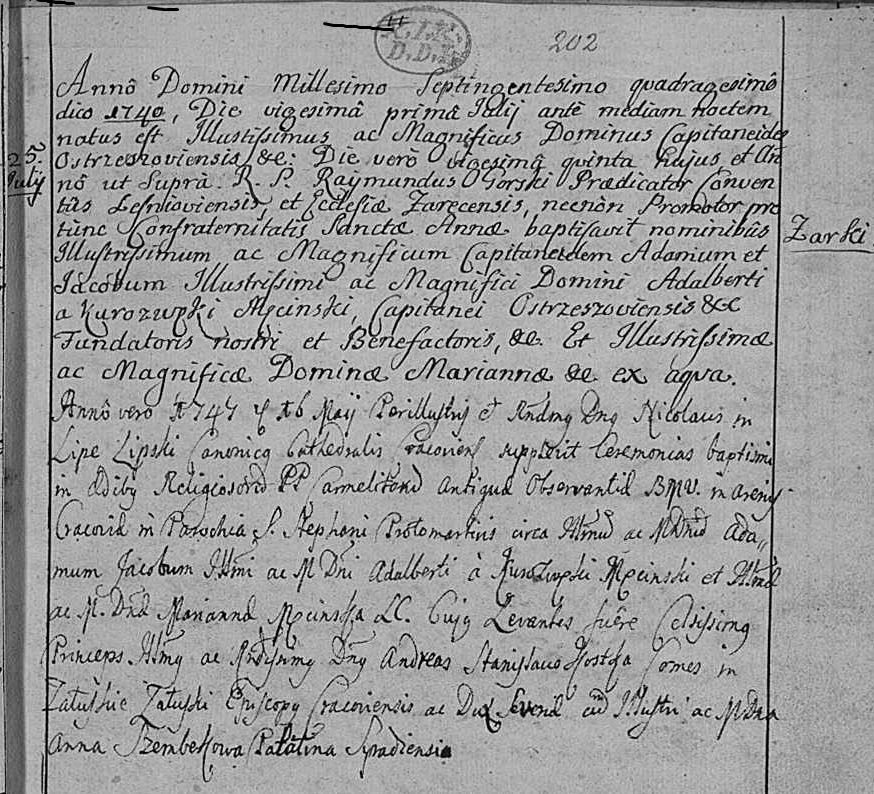 202
Annô Domini Millesimo Septingentesimo quadragesimô
dico 1740, Die vigesimâ primâ Julij antè mediam noctem
natus est Illustrissimus ac Magnificus Dominus Capitaneides
25. Julij
Ostrzeszoviensis &c: Die verò vigesimâ quinta hujus et An
nô ut Suprà. R. P. Raymundus OGorski Prædicator Conven
tûs Lesnioviensis, et Ecclesiæ Zarecensis, necnòn Promotor pro
tùnc Confraternitatis Sanctæ Annæ baptisavit nominibûs
Zarki
Illustrissimum ac Magnificum Capitaneidem Adamum et
Jacobum Illustrissimi ac Magnifici Domini Adalberti
a Kurozwęki Męcinski, Capitanei Ostrzeszoviensis &c
Fundatoris nostri et Benefactoris, &c. Et Illustrissimæ
ac Magnificæ Dominæ Mariannæ &c ex aqua.
Annô verò 1747 16 Maij Perillustris et Rndmg Dng Nicolaus in
Lipe Lipski Canonicg Cathedralis Cracovien supplevit Ceremonias baptismi
in Ædibg Religiosorū PP Carmelitarū Antiquæ Observantiæ BMV. in Arenis
Cracoviæ in Parochia S. Stephani Protomartiris circa Illmū ac MDnū Ada„
mum Jacobum Illmi ac M Dni Adalberti à Kurozwęki Męcinski et Illmæ
ac M. Dnæ Mariannæ Męcinska &C. Cujg Levantes fuêre Celsissimg
Princeps Illmg ac Rndissimg Dng Andreas Stanislaus Kostka Comes in
Załuskie Załuski Episcopg Cracoviensis ac Dux Severiæ cū Illustri ac M Dna
Anna Szembekowa Palatina Syradiensi